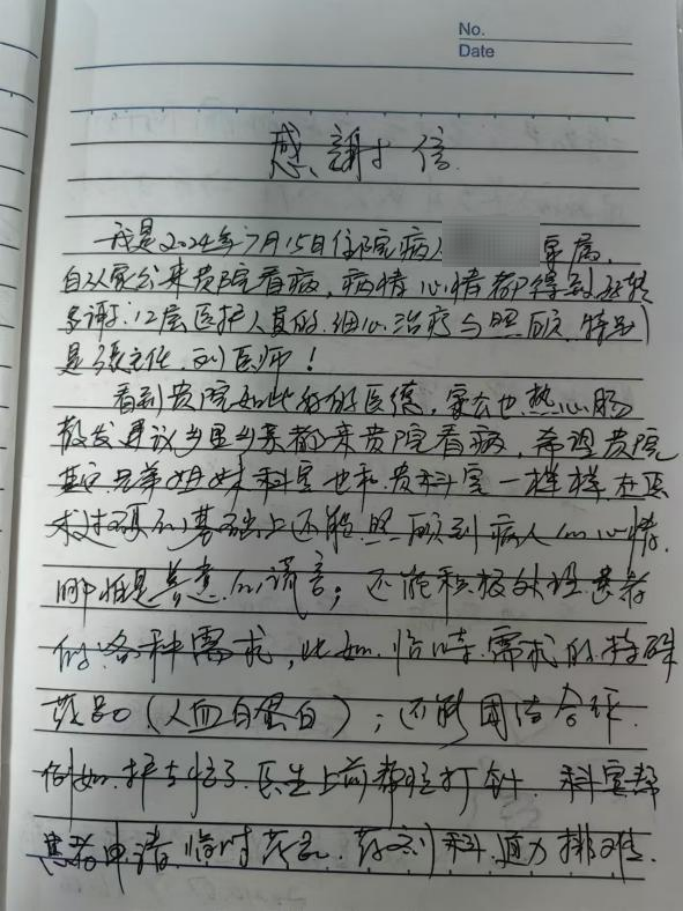 No.
Date
感謝信
我是2024年7月15日住院病人 家属,
自从家公来贵院看病,病情心情都得到好转
多谢12层医护人员的细心治疗与照顾,特别
是张主任、刘医师!
看到贵院如此好的医德,家公也热心肠
散发建议乡里乡亲都来贵院看病,希望贵院
其它兄弟姐妹科室也和贵科室一样样,在医
术过硬的基础上还能照顾到病人的心情,
哪怕是善意的谎言;还能积极处理患者
的各种需求,比如.临时需求的特殊
药品(人血白蛋白);还能团结合作.
例如.护士忙了.医生上前帮忙打针.科室帮
患者申请临时药品.药剂科.通力排难.